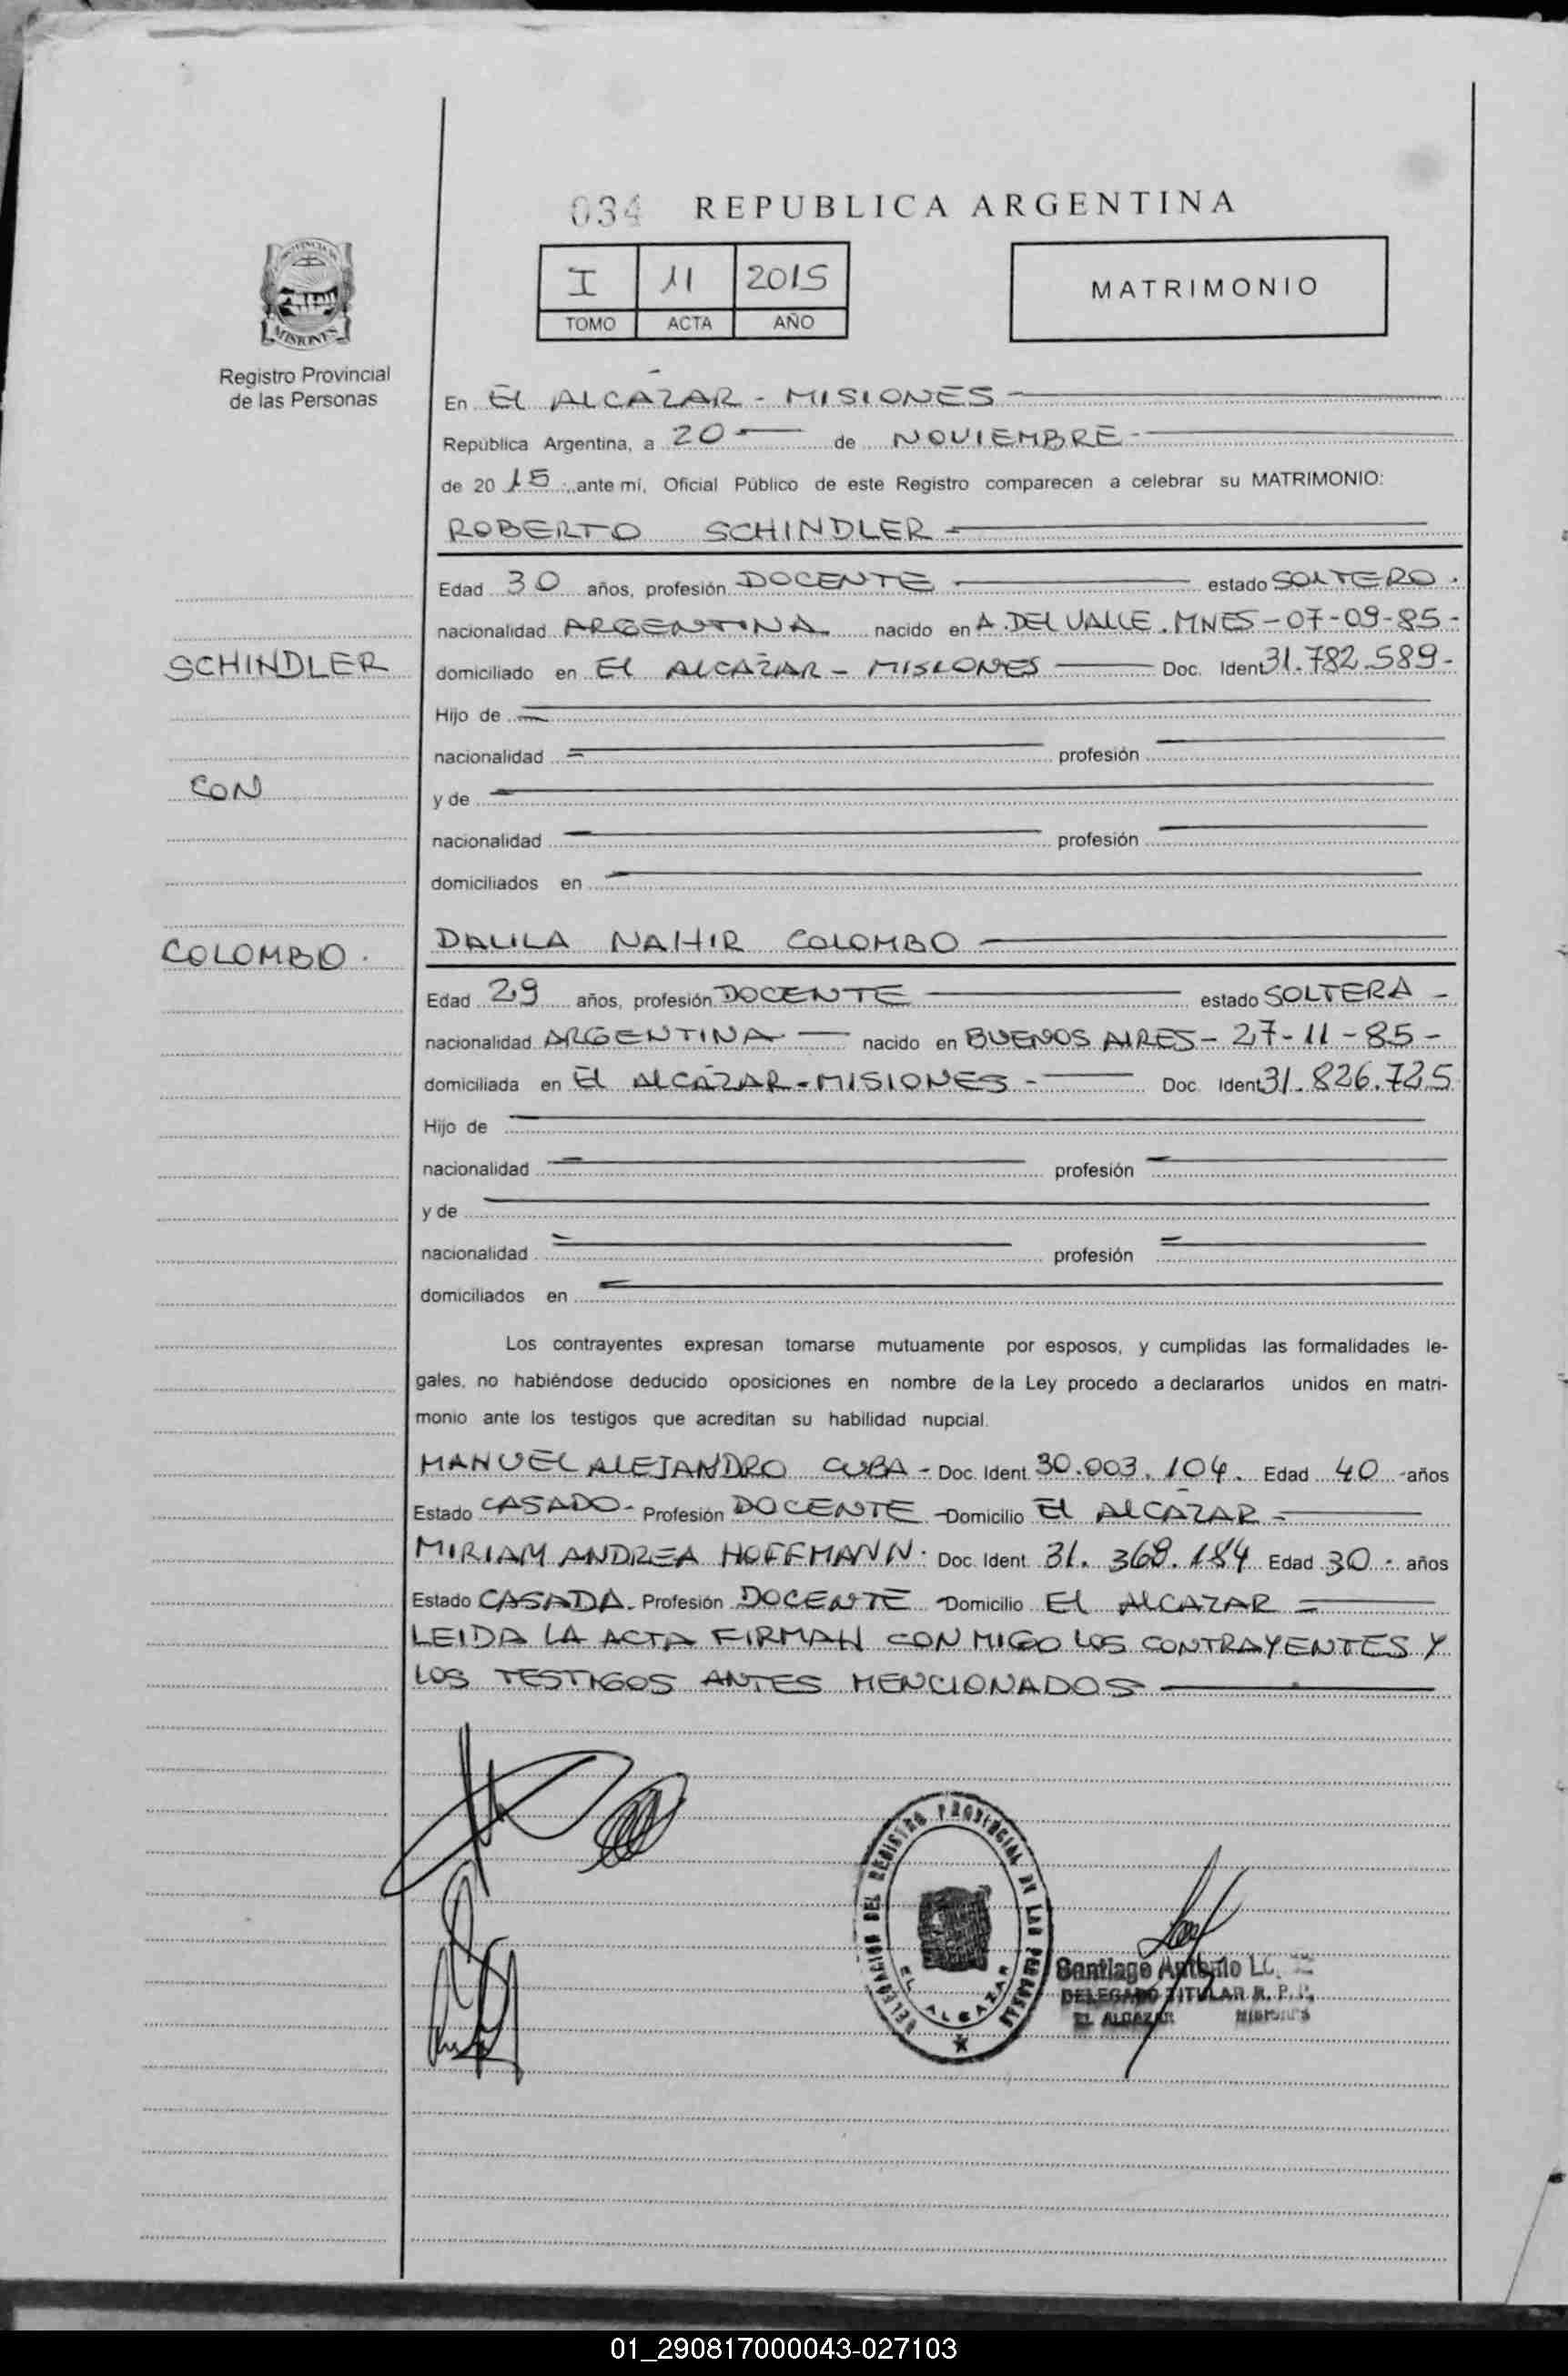 034 REPUBLICA ARGENTINA
I 11 2015
TOMO ACTA AÑO
MATRIMONIO
PROVINCIA DE
MISIONES
Registro Provincial
de las Personas
En EL ALCÁZAR - MISIONES
República Argentina, a 20 de NOVIEMBRE -
de 2015, ante mí, Oficial Público de este Registro comparecen a celebrar su MATRIMONIO:
ROBERTO SCHINDLER
Edad 30 años, profesión DOCENTE estado SOLTERO.
nacionalidad ARGENTINA. nacido en A. DEL VALLE. MNES - 07-09-85 -
SCHINDLER
domiciliado en EL ALCÁZAR - MISIONES Doc. Ident 31.782.589-
Hijo de
nacionalidad profesión
CON
y de
nacionalidad profesión
domiciliados en
COLOMBO.
DALILA NAHIR COLOMBO
Edad 29 años, profesión DOCENTE estado SOLTERA -
nacionalidad ARGENTINA nacido en BUENOS AIRES - 27-11-85 -
domiciliada en EL ALCÁZAR - MISIONES - Doc. Ident 31.826.725
Hijo de
nacionalidad profesión
y de
nacionalidad profesión
domiciliados en
Los contrayentes expresan tomarse mutuamente por esposos, y cumplidas las formalidades le-
gales, no habiéndose deducido oposiciones en nombre de la Ley procedo a declararlos unidos en matri-
monio ante los testigos que acreditan su habilidad nupcial.
MANUEL ALEJANDRO CUBA - Doc. Ident. 30.003.104. Edad 40 - años
Estado CASADO - Profesión DOCENTE - Domicilio EL ALCÁZAR -
MIRIAM ANDREA HOFFMANN. Doc. Ident. 31.368.184 Edad 30 - años
Estado CASADA. Profesión DOCENTE - Domicilio EL ALCAZAR
LEIDA LA ACTA FIRMAN CON MIGO LOS CONTRAYENTES Y
LOS TESTIGOS ANTES MENCIONADOS
DELEGACION DEL REGISTRO PROVINCIAL DE LAS PERSONAS
EL ALCAZAR
Santiago Antonio
DELEGADO TITULAR R. P. P.
EL ALCAZAR Misiones
01_290817000043-027103